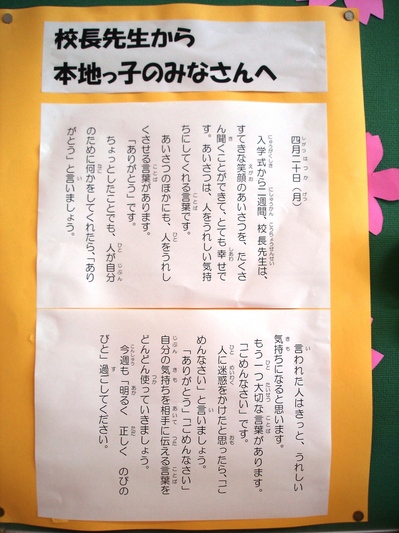 校長先生から
本地っ子のみなさんへ
四月二十日（月）
入学式から二週間、校長先生は、
すてきな笑顔のあいさつを、たくさ
ん聞くことができて、とても幸せで
す。あいさつは、人をうれしい気持
ちにしてくれる言葉です。
あいさつのほかにも、人をうれし
くさせる言葉があります。
「ありがとう」です。
ちょっとしたことでも、人が自分
のために何かをしてくれたら、「あり
がとう」と言いましょう。
言われた人はきっと、うれしい
気持ちになると思います。
もう一つ大切な言葉があります。
「ごめんなさい」です。
人に迷惑をかけたと思ったら、「ご
めんなさい」と言いましょう。
「ありがとう」「ごめんなさい」
自分の気持ちを相手に伝える言葉を
どんどん使っていきましょう。
今週も「明るく 正しく のびの
びと」過ごしてください。